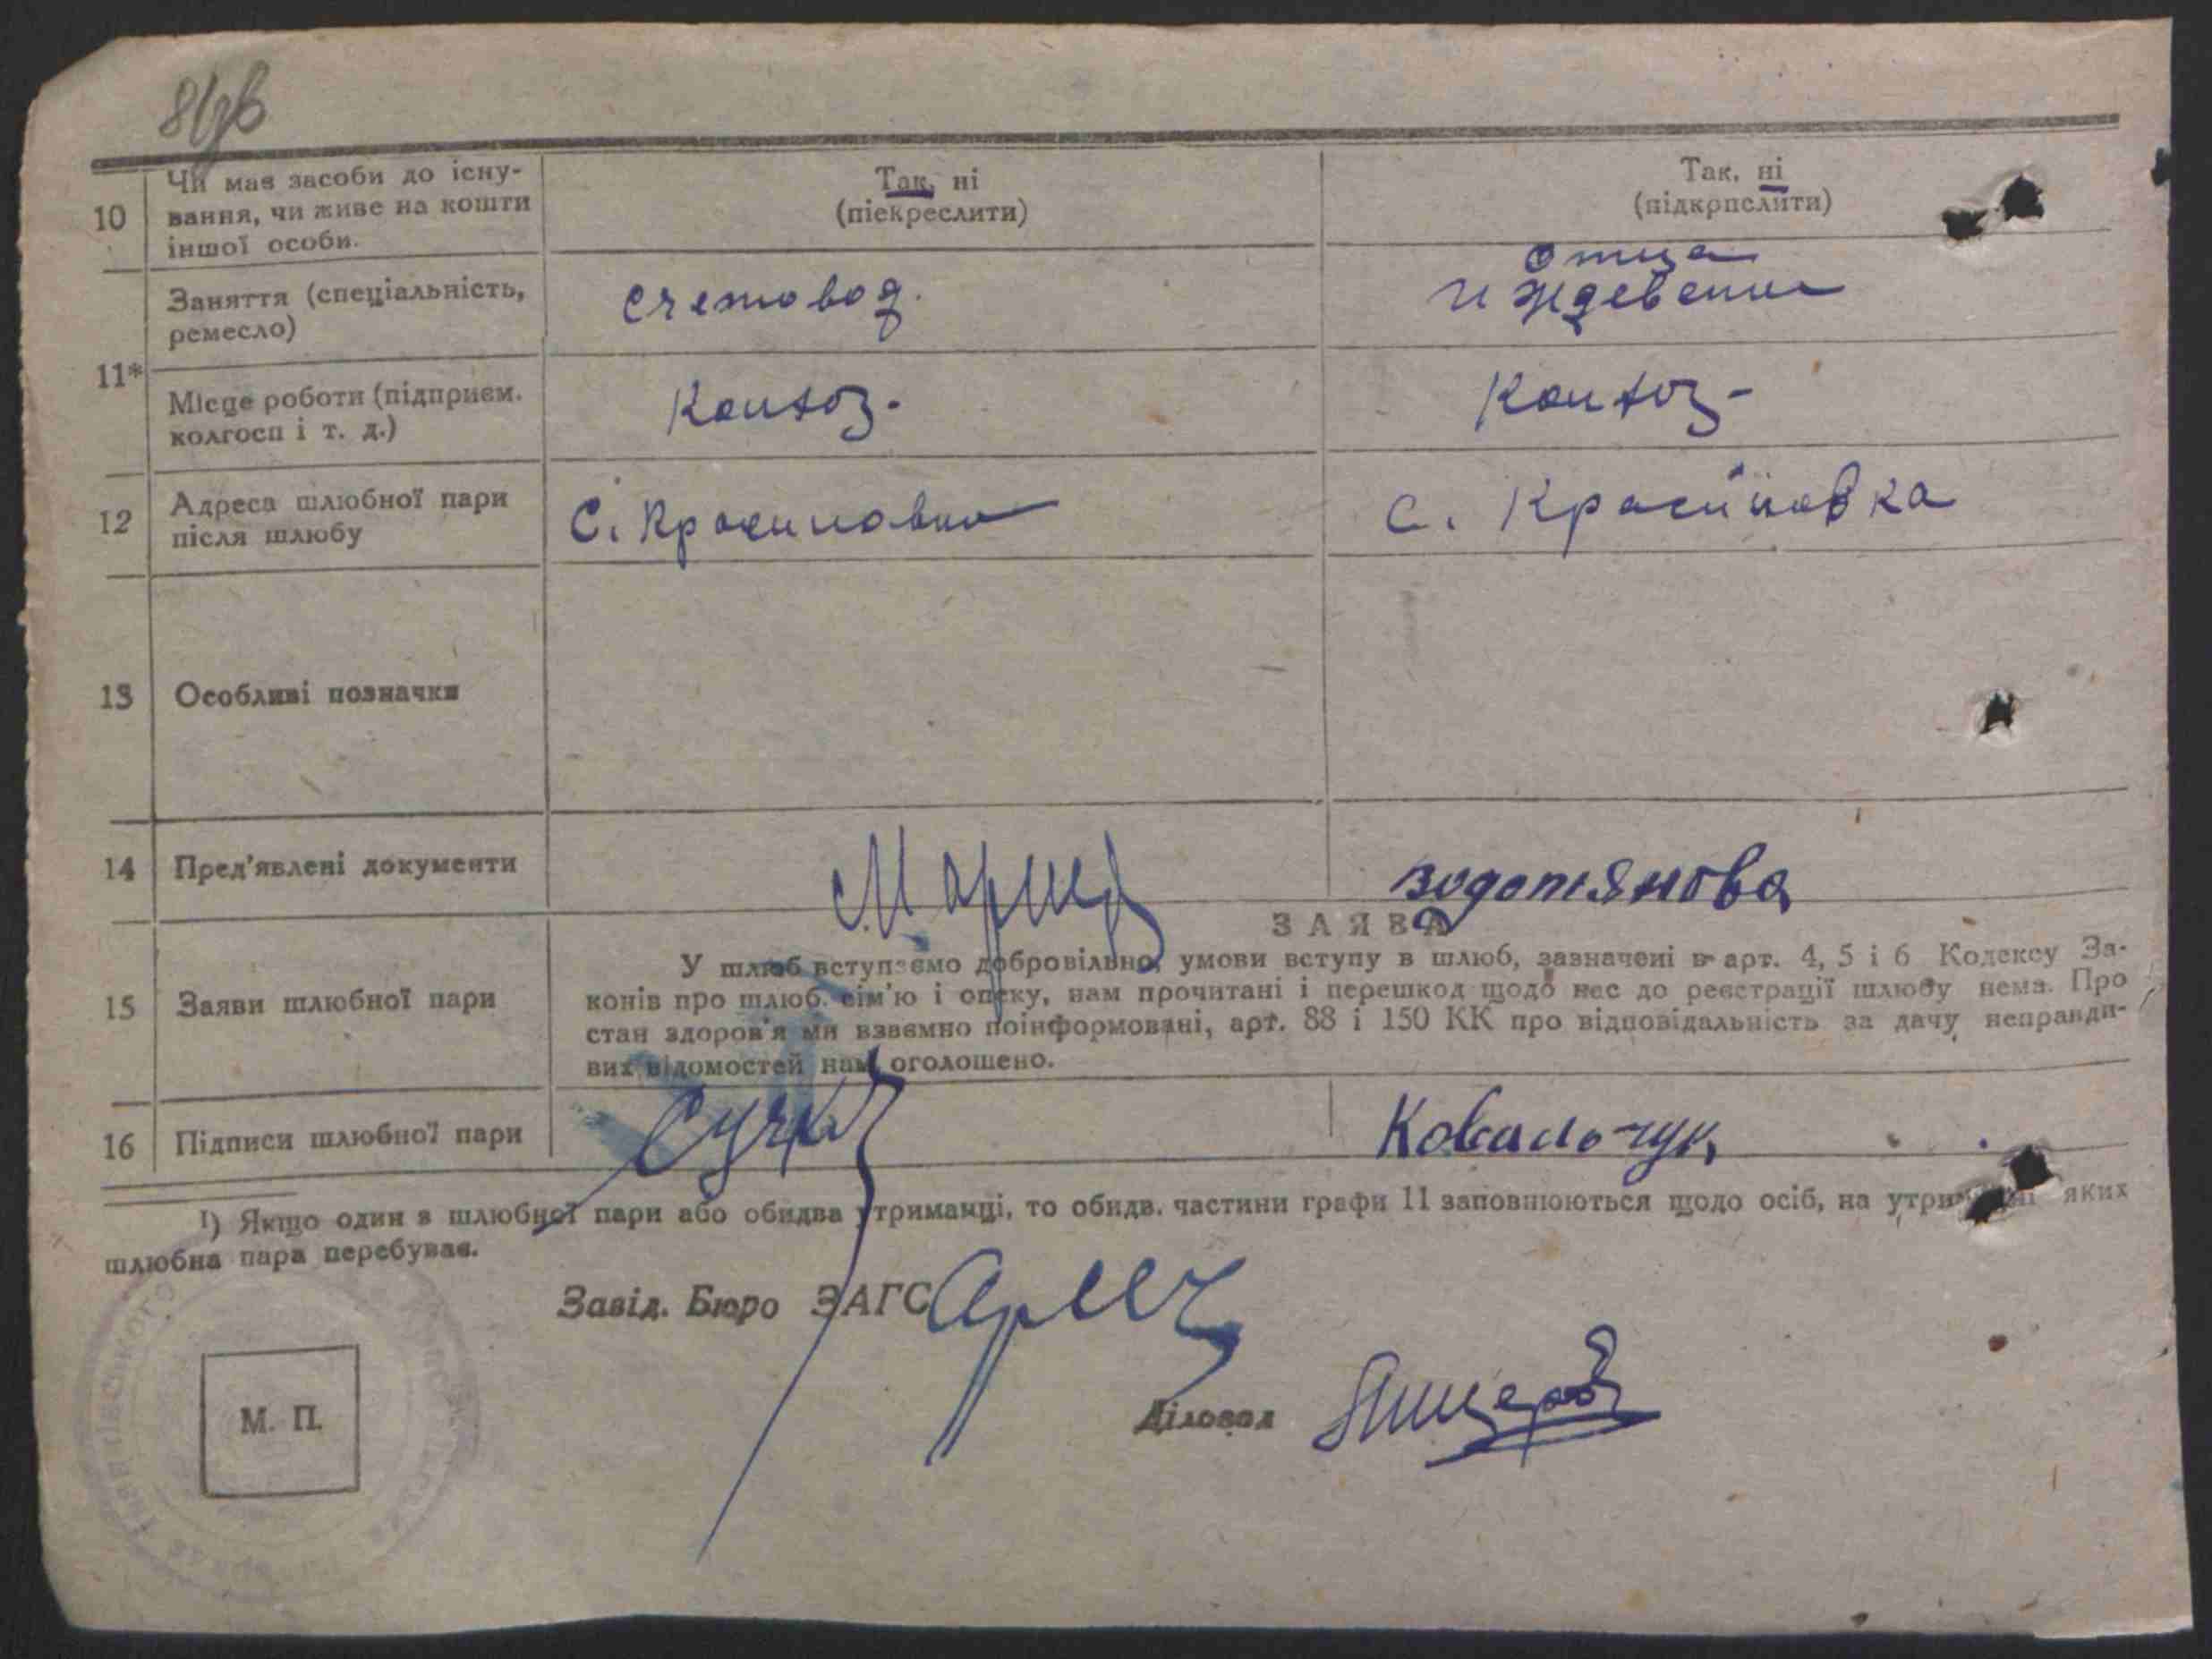 10
Чи має засоби до існу-
вання, чи живе на кошти
іншої особи.
Так, ні
(піекреслити)
Так, ні
(підкрпслити)
11*
Заняття (спеціальність,
ремесло)
Счетовод.
отца
иждевении
Місце роботи (підприєм.
колгосп і т. д.)
Колхоз.
Колхоз-
12
Адреса шлюбної пари
після шлюбу
С. Красиловка
с. Красиловка
13
Особливі позначки
14
Пред'явлені документи
Водотянова
15
Заяви шлюбної пари
ЗАЯВА
У шлюб вступаємо добровільно, умови вступу в шлюб, зазначені в арт. 4, 5 і 6 Кодексу За-
конів про шлюб. сім'ю і опеку, нам прочитані і перешкод щодо нас до реєстрації шлюбу нема. Про
стан здоров'я ми взаємно поінформовані, арт. 88 і 150 КК про відповідальність за дачу неправди-
вих відомостей нам оголошено.
16
Підписи шлюбної пари
Ковальчук
1) Якщо один з шлюбної пари або обидва утриманці, то обидв. частини графи 11 заповнюються щодо осіб, на яких
шлюбна пара перебуває.
Завід. Бюро ЗАГС
Діловод
М. П.